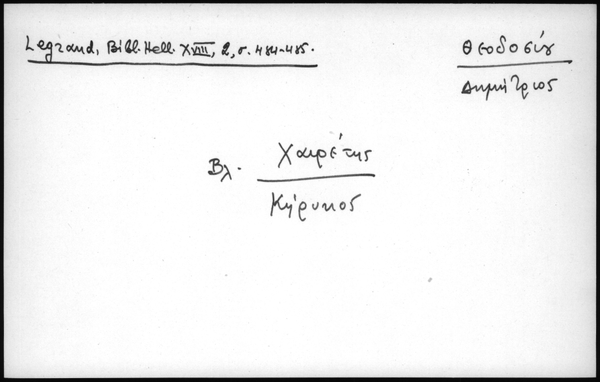 Legrand, Bibl. Hell. XVIII, 2, σ. 484-485.
Θεοδοσίου
Δημήτριος
Βλ. Χαιρέτης
Κήρυκος